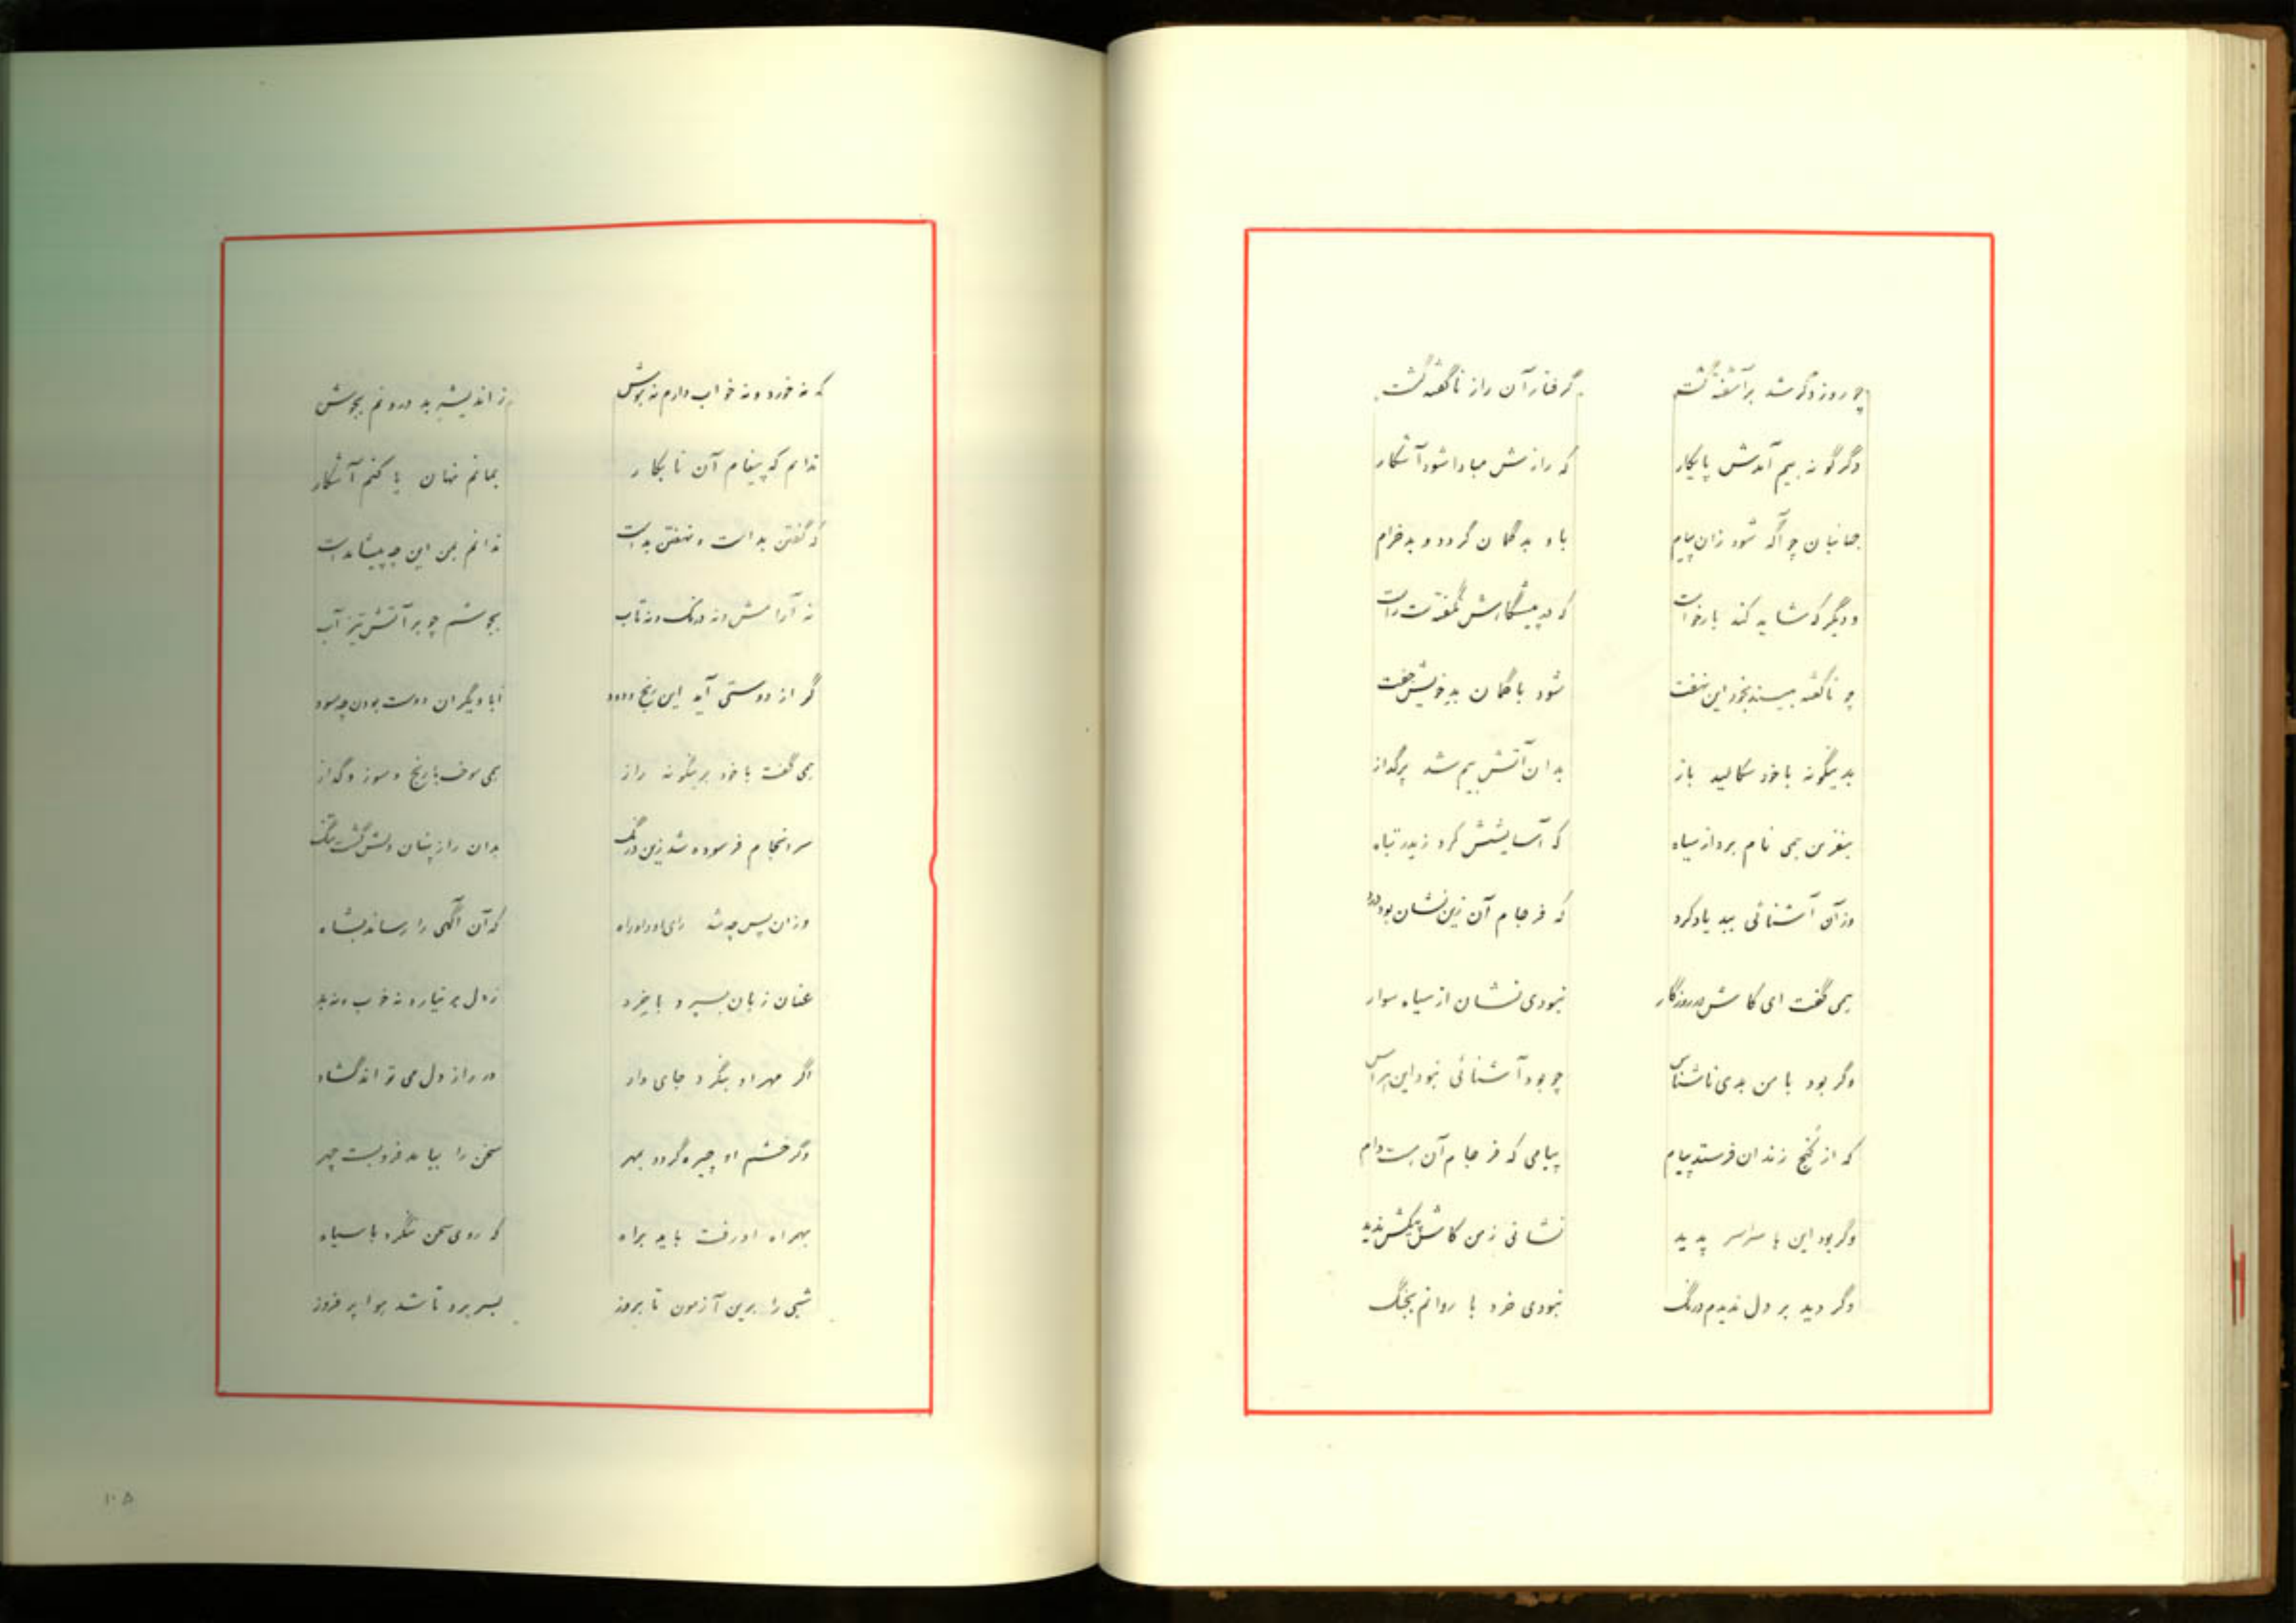 چو روز دگر شد برآشفته گشت گرفتار آن راز ناگفته گشت
دگرگونه بیم آمدش پایکار که رازش مبادا شود آشکار
جهانبان چو آگه شود زان پیام باو بدگمان گردد و بدخرام
و دیگر که شاید کند بازخواست که در پیشگاهش نگفته است راست
چو ناگفته بیند بخود این نهفت شود با گمان بد خویش جفت
بدینگونه با خود سگالید باز بدان آتش بیم شد پرگداز
بنفرین همی نام برد از سیاه که آسایشش کرد زیدر تباه
وزآن آشنائی ببد یاد کرد که فرجام آن زین نشان بود درد
همی گفت ای کاش در روزگار نبودی نشان از سیاه سوار
وگر بود با من بدی ناشناس چو بود آشنائی نبود این هراس
که از کنج زندان فرستد پیام پیامی که فرجام آن هست دام
وگر بود این با سراسر پدید نشانی ز من کاش ندید
وگر دید بر دل ندیدم درنگ نبودی خرد با روانم بجنگ
که نه خورد و نه خواب دارم نه هوش ز اندیشه بد درونم بجوش
ندانم که پیغام آن نابکار بمانم نهان یا کنم آشکار
که گفتن بد است و نهفتن بد است ندانم بمن این چه پیش آمد است
نه آرامش و نه درنگ و نه تاب بجوشم چو بر آتش تیز آب
گر از دوستی آید این رنج و دود ابا دیگران دوست بودن چه سود
همی گفت با خود برینگونه راز همی سوخت با رنج و سوز و گداز
سرانجام فرسوده شد زین درنگ بدان راز پنهان دلش گشت تنگ
وزان پس چه شد رای او را که آن آگهی را رساند بشاه
عنان زبان بسپرد با خرد ز دل بر نیارد نه خوب و نه بد
اگر مهر او بنگرد جای داد در راز دل می تواند گشاد
وگر خشم او چیره گردد بمهر سخن را بباید فرو بست چهر
بهمراه او رفت باید براه که روی سخن ننگرد با سیاه
شبی را برین آزمون تا بروز بسر برد تا شد هوا پر فروز
۱۰۵